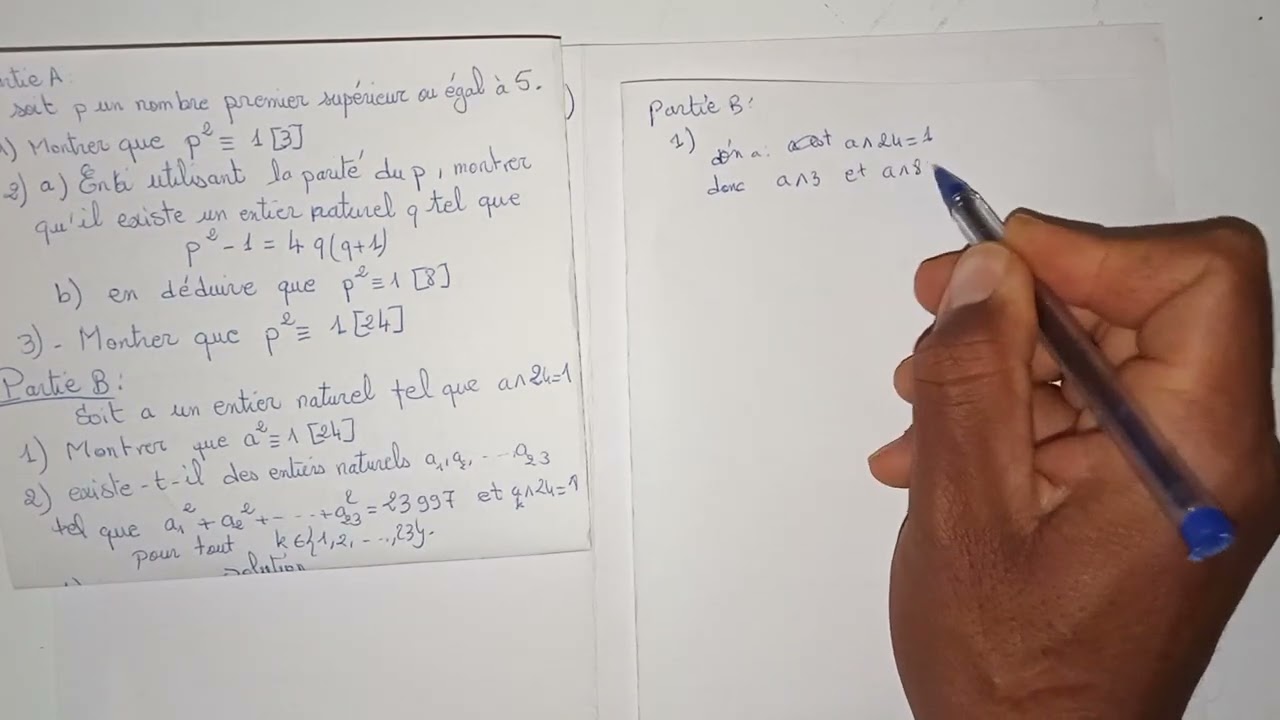 rtie A:
soit p un nombre premier supérieur ou égal à 5.
1) Montrer que p² ≡ 1 [3]
2) a) En utilisant la parité du p, montrer
qu'il existe un entier naturel q tel que
p² - 1 = 4 q(q+1)
b) en déduire que p² ≡ 1 [8]
3) - Montrer que p² ≡ 1 [24]
Partie B:
Soit a un entier naturel tel que a∧24=1
1) Montrer que a² ≡ 1 [24]
2) existe-t-il des entiers naturels a₁, a₂, ... a₂₃
tel que a₁² + a₂² + ... + a₂₃² = 23997 et aₖ∧24=1
pour tout k∈{1,2, ...,23}.
solution
)
Partie B:
1) on a: a∧24=1
donc a∧3 et a∧8